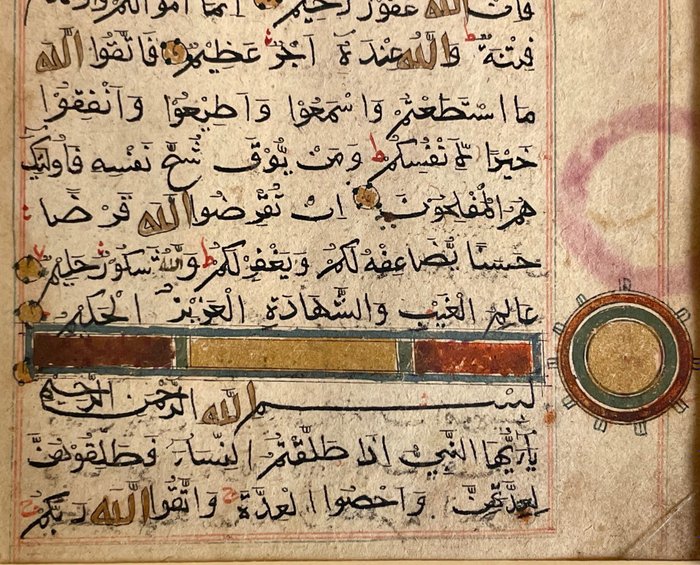 فَاِنَّ اللّٰهَ غَفُوْرٌ رَحِيْمٌ اِنَّمَا اَمْوَالُكُمْ
فِتْنَةٌ ط وَاللّٰهُ عِنْدَهُ اَجْرٌ عَظِيْمٌ فَاتَّقُوا اللّٰهَ
مَا اسْتَطَعْتُمْ وَاسْمَعُوْا وَاَطِيْعُوْا وَاَنْفِقُوْا
خَيْرًا لِاَنْفُسِكُمْ ط وَمَنْ يُّوْقَ شُحَّ نَفْسِهِ فَاُولٰئِكَ
هُمُ الْمُفْلِحُوْنَ اِنْ تُقْرِضُوا اللّٰهَ قَرْضًا
حَسَنًا يُّضَاعِفْهُ لَكُمْ وَيَغْفِرْ لَكُمْ ط وَاللّٰهُ شَكُوْرٌ حَلِيْمٌ
عَالِمُ الْغَيْبِ وَالشَّهَادَةِ الْعَزِيْزُ الْحَكِيْمُ
بِسْمِ اللّٰهِ الرَّحْمٰنِ الرَّحِيْمِ
يٰاَيُّهَا النَّبِيُّ اِذَا طَلَّقْتُمُ النِّسَاءَ فَطَلِّقُوْهُنَّ
لِعِدَّتِهِنَّ وَاَحْصُوا الْعِدَّةَ ج وَاتَّقُوا اللّٰهَ رَبَّكُمْ ج